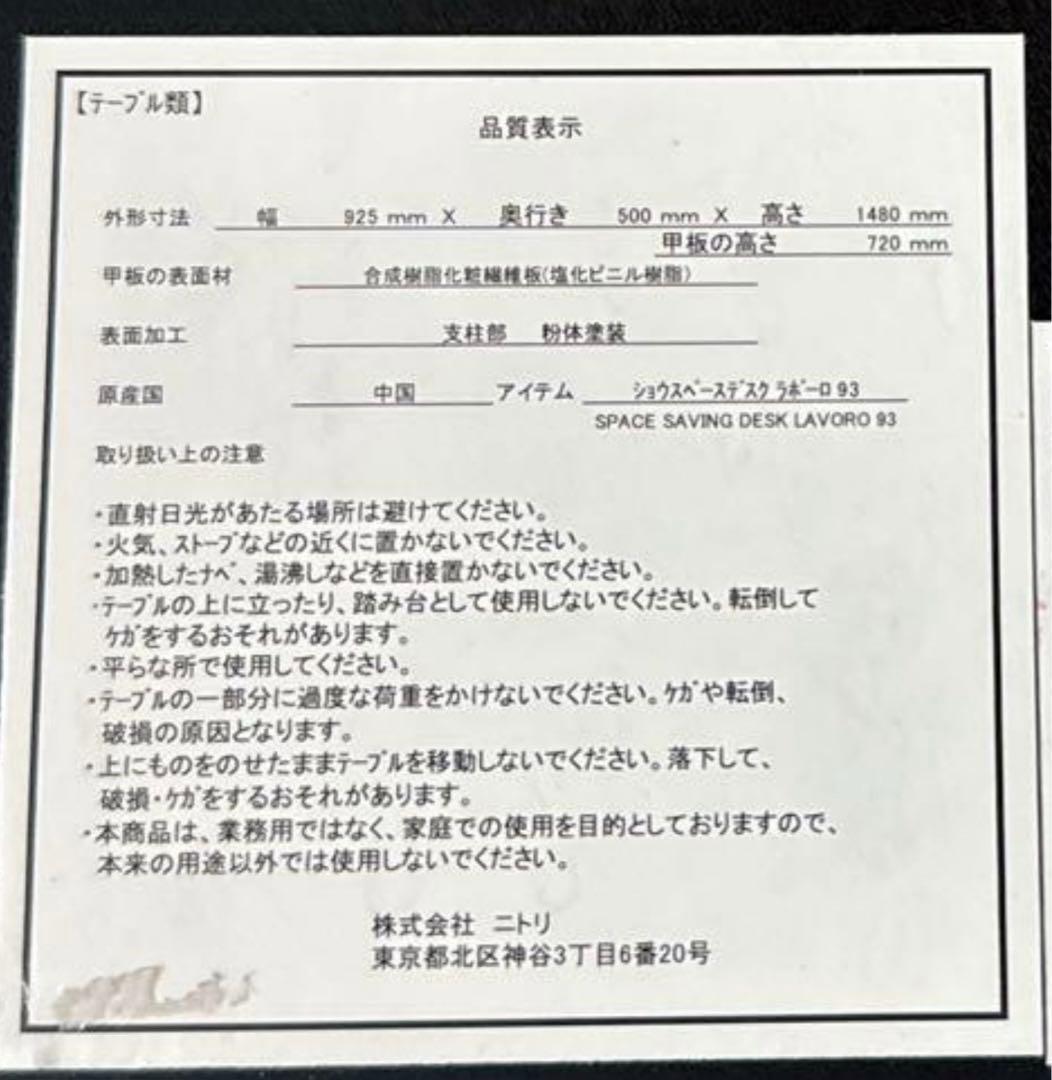 【テーブル類】
品質表示
外形寸法 幅 925 mm X 奥行き 500 mm X 高さ 1480 mm
甲板の高さ 720 mm
甲板の表面材 合成樹脂化粧繊維板(塩化ビニル樹脂)
表面加工 支柱部 粉体塗装
原産国 中国 アイテム ショウスペースデスク ラボーロ 93
SPACE SAVING DESK LAVORO 93
取り扱い上の注意
・直射日光があたる場所は避けてください。
・火気、ストーブなどの近くに置かないでください。
・加熱したナベ、湯沸しなどを直接置かないでください。
・テーブルの上に立ったり、踏み台として使用しないでください。転倒して
ケガをするおそれがあります。
・平らな所で使用してください。
・テーブルの一部分に過度な荷重をかけないでください。ケガや転倒、
破損の原因となります。
・上にものをのせたままテーブルを移動しないでください。落下して、
破損・ケガをするおそれがあります。
・本商品は、業務用ではなく、家庭での使用を目的としておりますので、
本来の用途以外では使用しないでください。
株式会社 ニトリ
東京都北区神谷3丁目6番20号